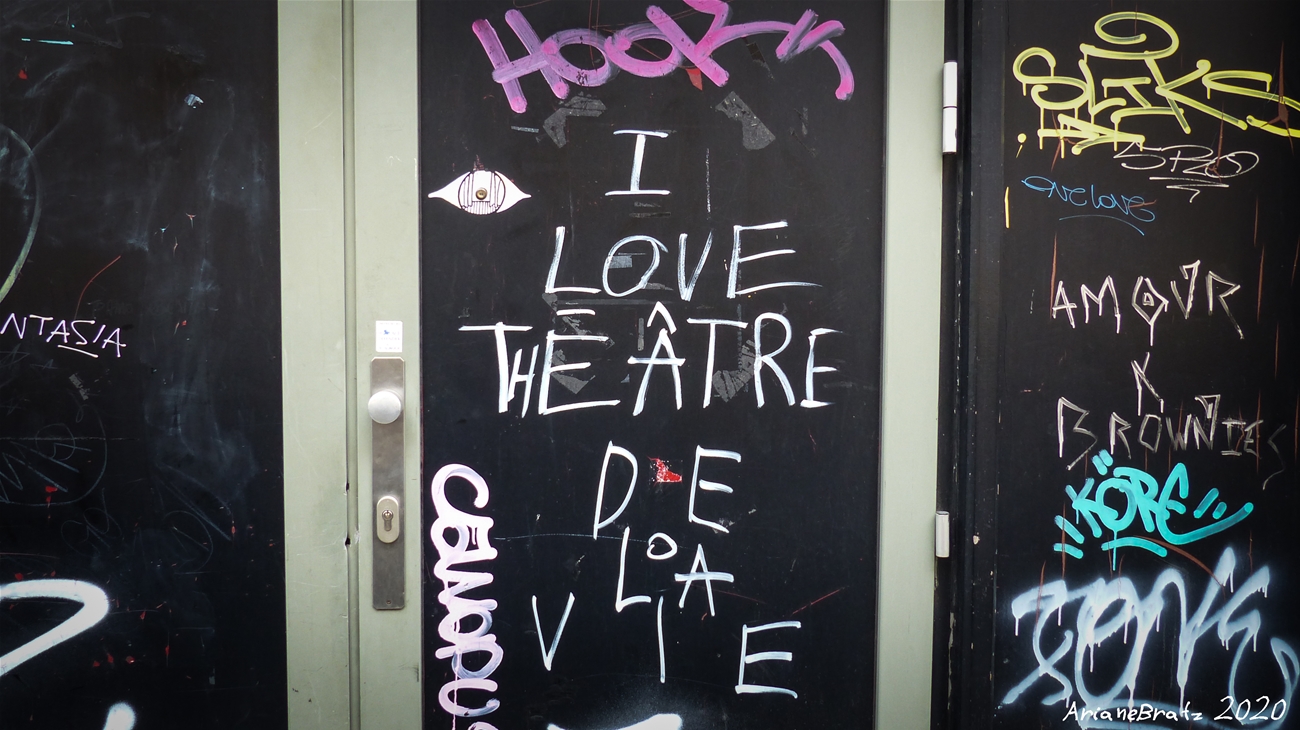 HOOK
I
LOVE
THÉÂTRE
DE
LA
VIE
NTASIA
SLIKS
ONE LOVE
AMOUR
N
BROWNIES
KÖRE
ArianeBratz 2020